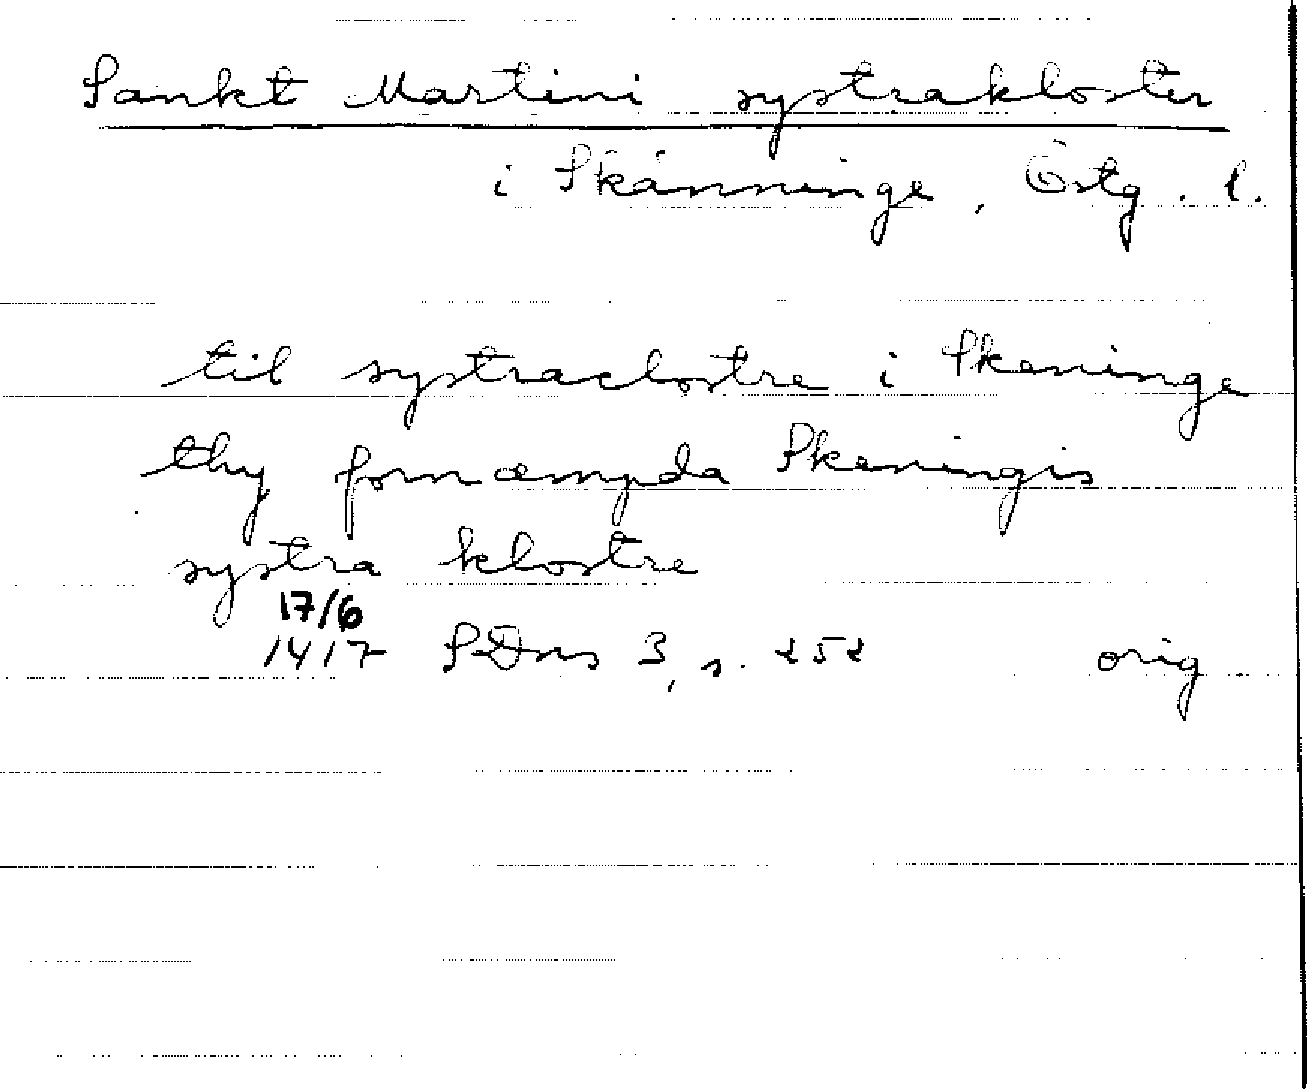 Sankt Martini systrakloster
i Skänninge, Östg. l.
til systraclostre i Skeninge
thy fornæmpda Skeningis
systra klostre
17/6
1417 SDns 3, s. 252 orig